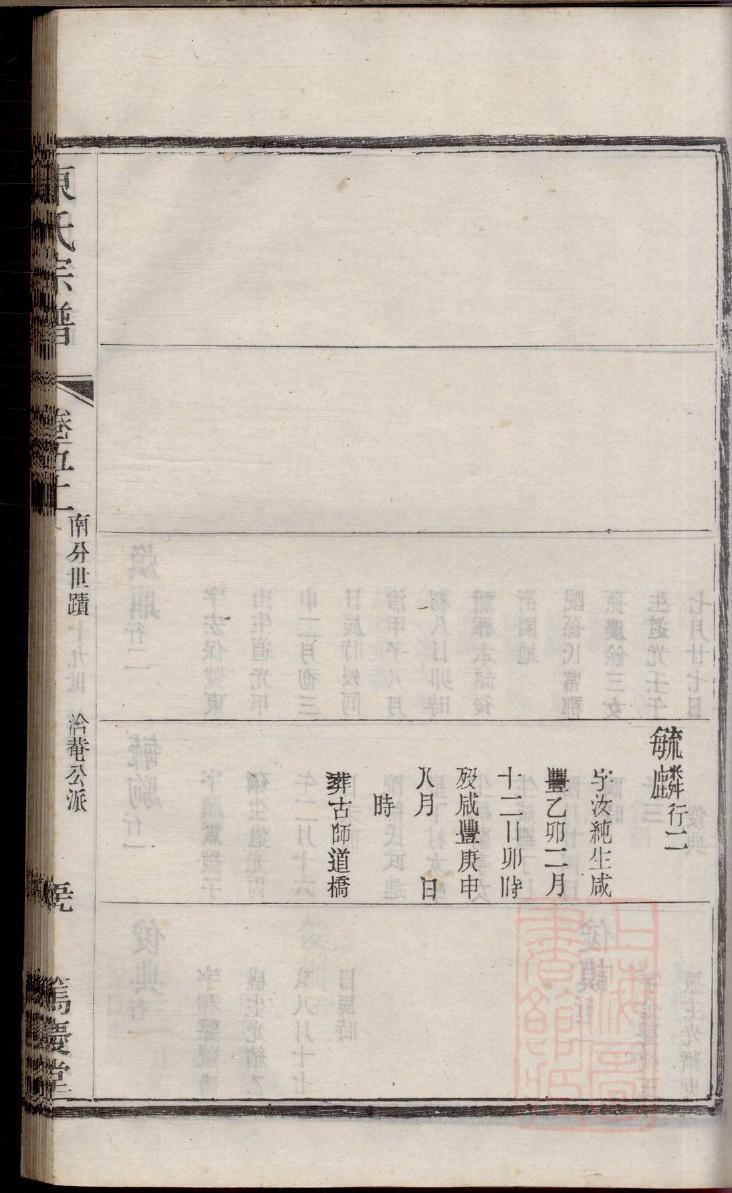 毓麟行二
字汝純生咸
豐乙卯二月
十二日卯時
歿咸豐庚申
八月　日
時
葬古師道橋
陳氏宗譜
卷五上
南分世蹟
洽菴公派
篤慶堂